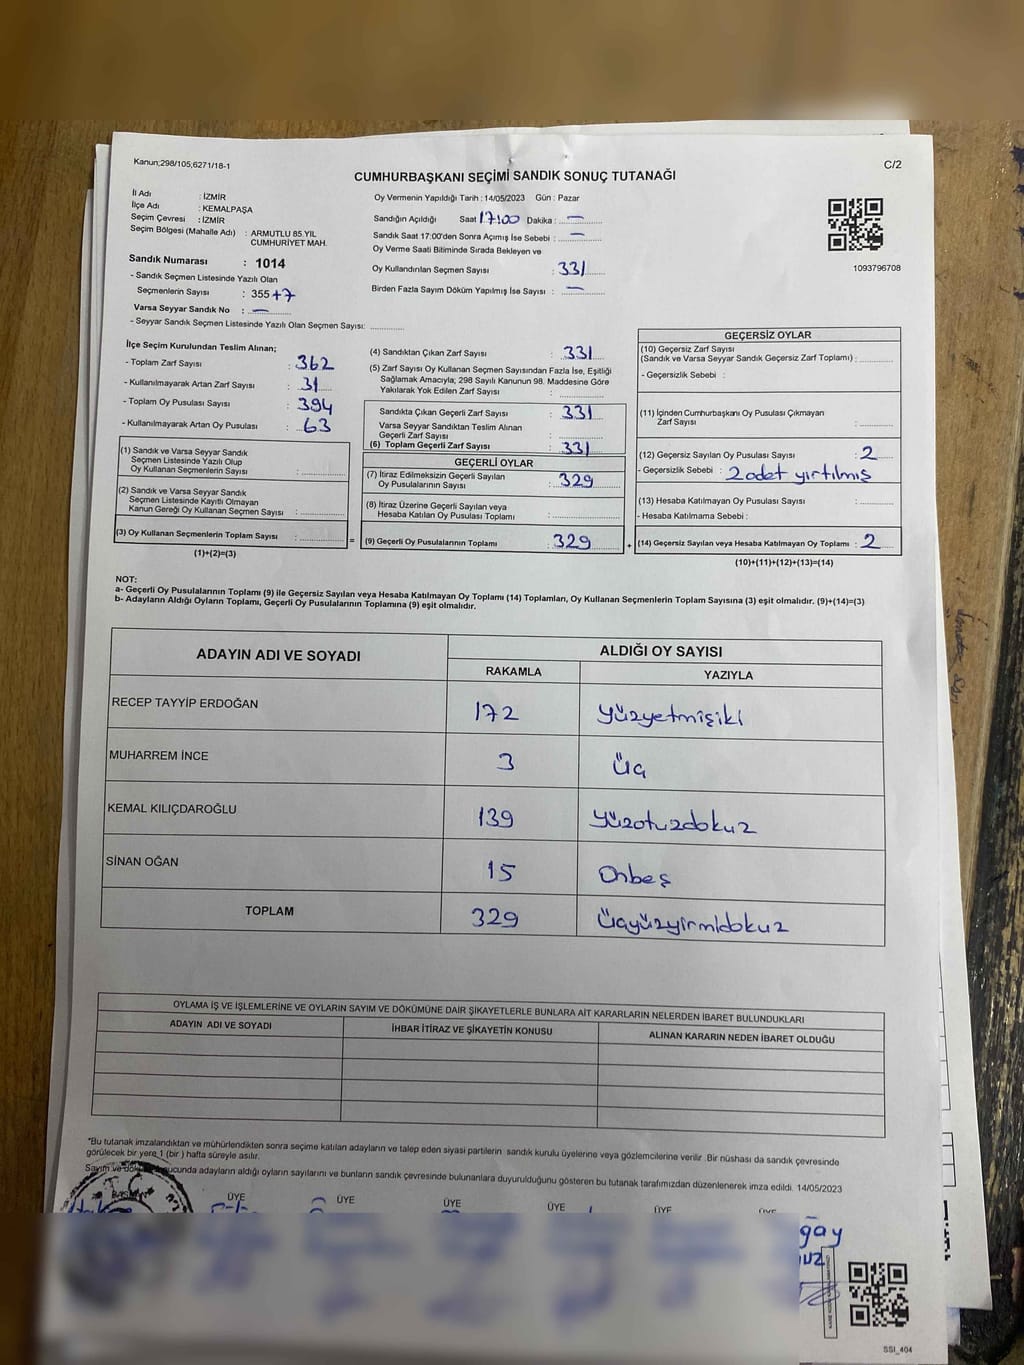 Kanun;298/105,6271/18-1
C/2
CUMHURBAŞKANI SEÇİMİ SANDIK SONUÇ TUTANAĞI
İl Adı : İZMİR
İlçe Adı : KEMALPAŞA
Seçim Çevresi : İZMİR
Seçim Bölgesi (Mahalle Adı) : ARMUTLU 85.YIL
CUMHURİYET MAH.
Sandık Numarası : 1014
- Sandık Seçmen Listesinde Yazılı Olan
Seçmenlerin Sayısı : 355 +7
Varsa Seyyar Sandık No : —
- Seyyar Sandık Seçmen Listesinde Yazılı Olan Seçmen Sayısı:
Oy Vermenin Yapıldığı Tarih : 14/05/2023 Gün : Pazar
Sandığın Açıldığı Saat 17:00 Dakika : —
Sandık Saat 17:00'den Sonra Açımış İse Sebebi : —
Oy Verme Saati Bitiminde Sırada Bekleyen ve
Oy Kullandırılan Seçmen Sayısı : 331
Birden Fazla Sayım Döküm Yapılmış İse Sayısı : —
1093796708
İlçe Seçim Kurulundan Teslim Alınan;
- Toplam Zarf Sayısı : 362
- Kullanılmayarak Artan Zarf Sayısı : 31
- Toplam Oy Pusulası Sayısı : 394
- Kullanılmayarak Artan Oy Pusulası : 63
(1) Sandık ve Varsa Seyyar Sandık
Seçmen Listesinde Yazılı Olup
Oy Kullanan Seçmenlerin Sayısı :
(2) Sandık ve Varsa Seyyar Sandık
Seçmen Listesinde Kayıtlı Olmayan
Kanun Gereği Oy Kullanan Seçmen Sayısı :
(3) Oy Kullanan Seçmenlerin Toplam Sayısı :
(1)+(2)=(3)
(4) Sandıktan Çıkan Zarf Sayısı : 331
(5) Zarf Sayısı Oy Kullanan Seçmen Sayısından Fazla İse, Eşitliği
Sağlamak Amacıyla; 298 Sayılı Kanunun 98. Maddesine Göre
Yakılarak Yok Edilen Zarf Sayısı :
Sandıkta Çıkan Geçerli Zarf Sayısı : 331
Varsa Seyyar Sandıktan Teslim Alınan
Geçerli Zarf Sayısı :
(6) Toplam Geçerli Zarf Sayısı : 331
GEÇERLİ OYLAR
(7) İtiraz Edilmeksizin Geçerli Sayılan
Oy Pusulalarının Sayısı : 329
(8) İtiraz Üzerine Geçerli Sayılan veya
Hesaba Katılan Oy Pusulası Toplamı :
= (9) Geçerli Oy Pusulalarının Toplamı : 329 +
GEÇERSİZ OYLAR
(10) Geçersiz Zarf Sayısı
(Sandık ve Varsa Seyyar Sandık Geçersiz Zarf Toplamı) :
- Geçersizlik Sebebi :
(11) İçinden Cumhurbaşkanı Oy Pusulası Çıkmayan
Zarf Sayısı :
(12) Geçersiz Sayılan Oy Pusulası Sayısı : 2
- Geçersizlik Sebebi : 2 adet yırtılmış
(13) Hesaba Katılmayan Oy Pusulası Sayısı :
- Hesaba Katılmama Sebebi :
(14) Geçersiz Sayılan veya Hesaba Katılmayan Oy Toplamı : 2
(10)+(11)+(12)+(13)=(14)
NOT:
a- Geçerli Oy Pusulalarının Toplamı (9) ile Geçersiz Sayılan veya Hesaba Katılmayan Oy Toplamı (14) Toplamları, Oy Kullanan Seçmenlerin Toplam Sayısına (3) eşit olmalıdır. (9)+(14)=(3)
b- Adayların Aldığı Oyların Toplamı, Geçerli Oy Pusulalarının Toplamına (9) eşit olmalıdır.
ADAYIN ADI VE SOYADI ALDIĞI OY SAYISI
RAKAMLA YAZIYLA
RECEP TAYYİP ERDOĞAN 172 yüzyetmişiki
MUHARREM İNCE 3 üç
KEMAL KILIÇDAROĞLU 139 yüzotuzdokuz
SİNAN OĞAN 15 Onbeş
TOPLAM 329 üçyüzyirmidokuz
OYLAMA İŞ VE İŞLEMLERİNE VE OYLARIN SAYIM VE DÖKÜMÜNE DAİR ŞİKAYETLERLE BUNLARA AİT KARARLARIN NELERDEN İBARET BULUNDUKLARI
ADAYIN ADI VE SOYADI İHBAR İTİRAZ VE ŞİKAYETİN KONUSU ALINAN KARARIN NEDEN İBARET OLDUĞU
*Bu tutanak imzalandıktan ve mühürlendikten sonra seçime katılan adayların ve talep eden siyasi partilerin sandık kurulu üyelerine veya gözlemcilerine verilir .Bir nüshası da sandık çevresinde
görülecek bir yere 1 (bir ) hafta süreyle asılır.
Sayım ve ucunda adayların aldığı oyların sayılarını ve bunların sandık çevresinde bulunanlara duyurulduğunu gösteren bu tutanak tarafımızdan düzenlenerek imza edildi. 14/05/2023
ÜYE ÜYE ÜYE ÜYE ÜYE ÜYE
gay
uz
SSI_404